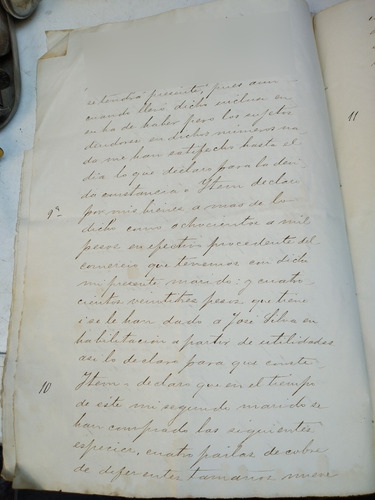 se tendrá presente, pues aun
cuando llevó dicho incluir en
en ha de haber pero los sujetos
deudores en dichos números na
da me han satisfechos hasta el
dia lo que declaro para la debi
da constancia = Ytem declaro
9ª
por mis bienes a mas de lo
dicho como ochocientos a mil
pesos en efectivo procedente del
comercio que tenemos con dicho
mi presente marido: y cuatro
cientos veintitres pesos que tiene
i se le han dado a José Silva en
habilitacion a partir de utilidades
asi lo declaro para que conste
10
Ytem = declaro que en el tiempo
de este mi segundo marido se
han comprado las siguientes
especies, cuatro pailas de cobre
de deferentes tamaños nueve
11